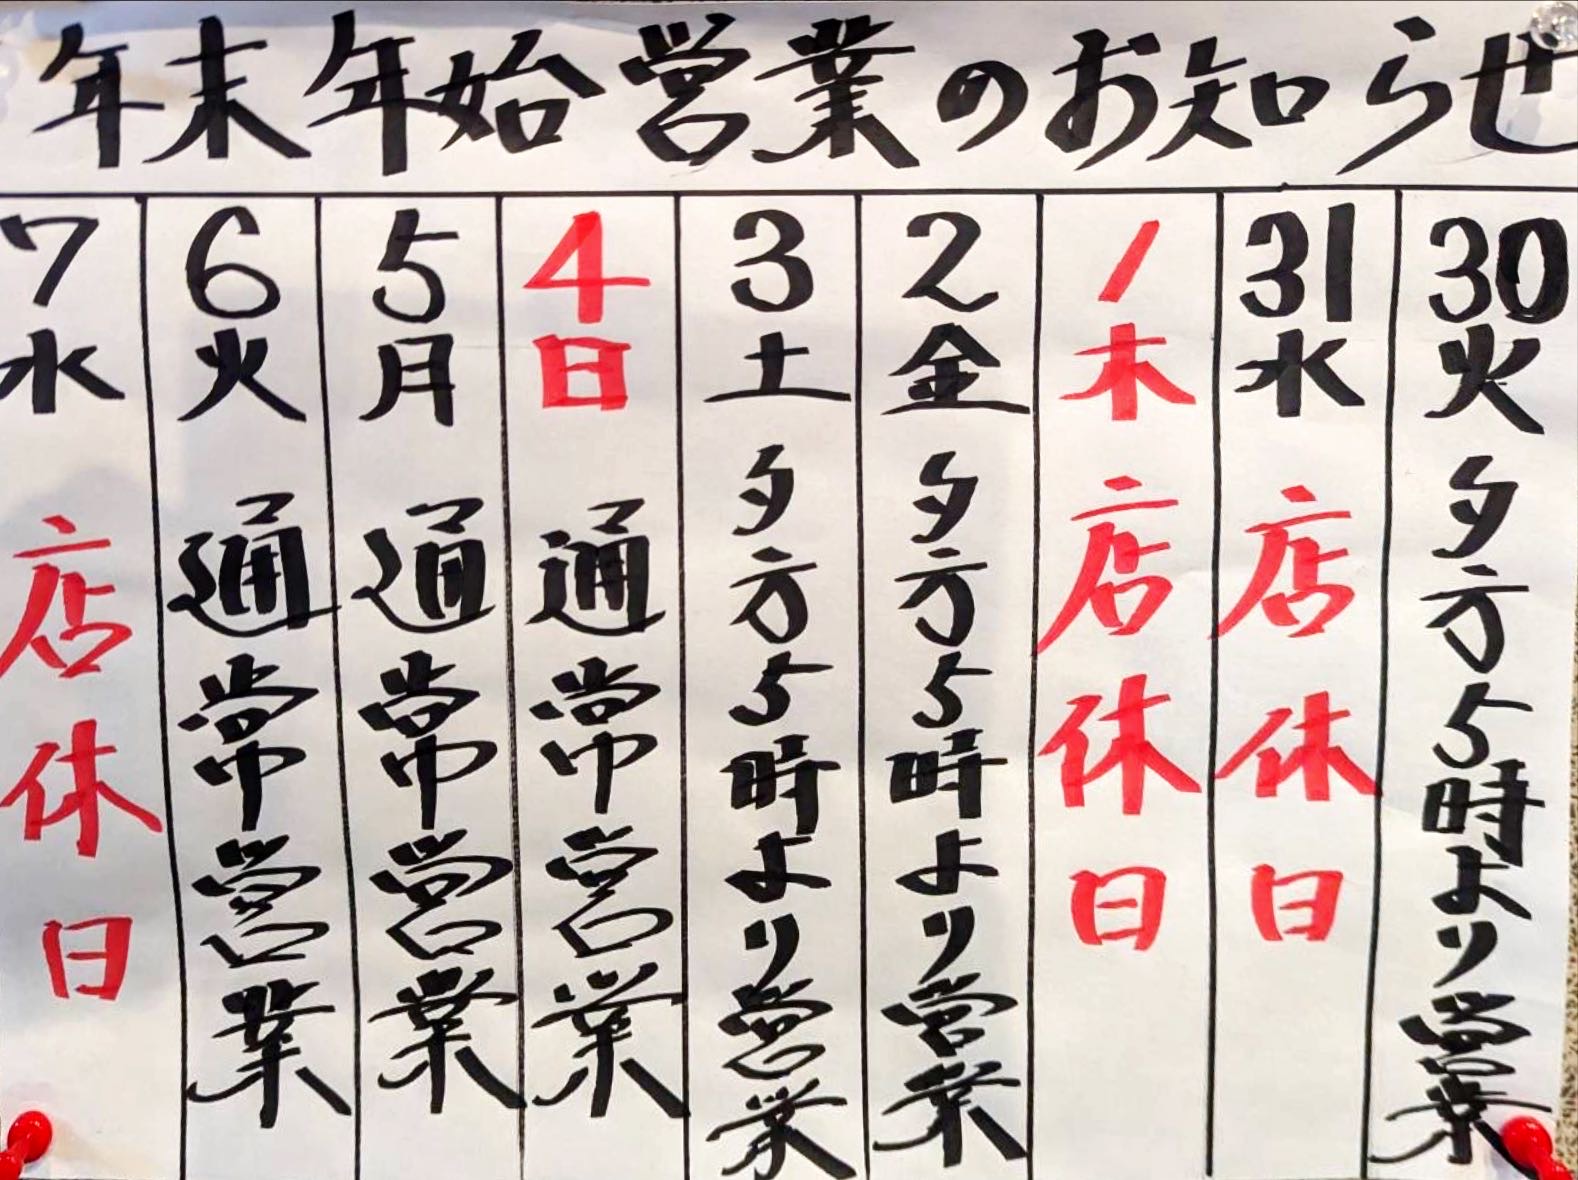 年末年始営業のお知らせ
30火夕方5時より営業
31水店休日
1木店休日
2金夕方5時より営業
3土夕方5時より営業
4日通常営業
5月通常営業
6火通常営業
7水店休日